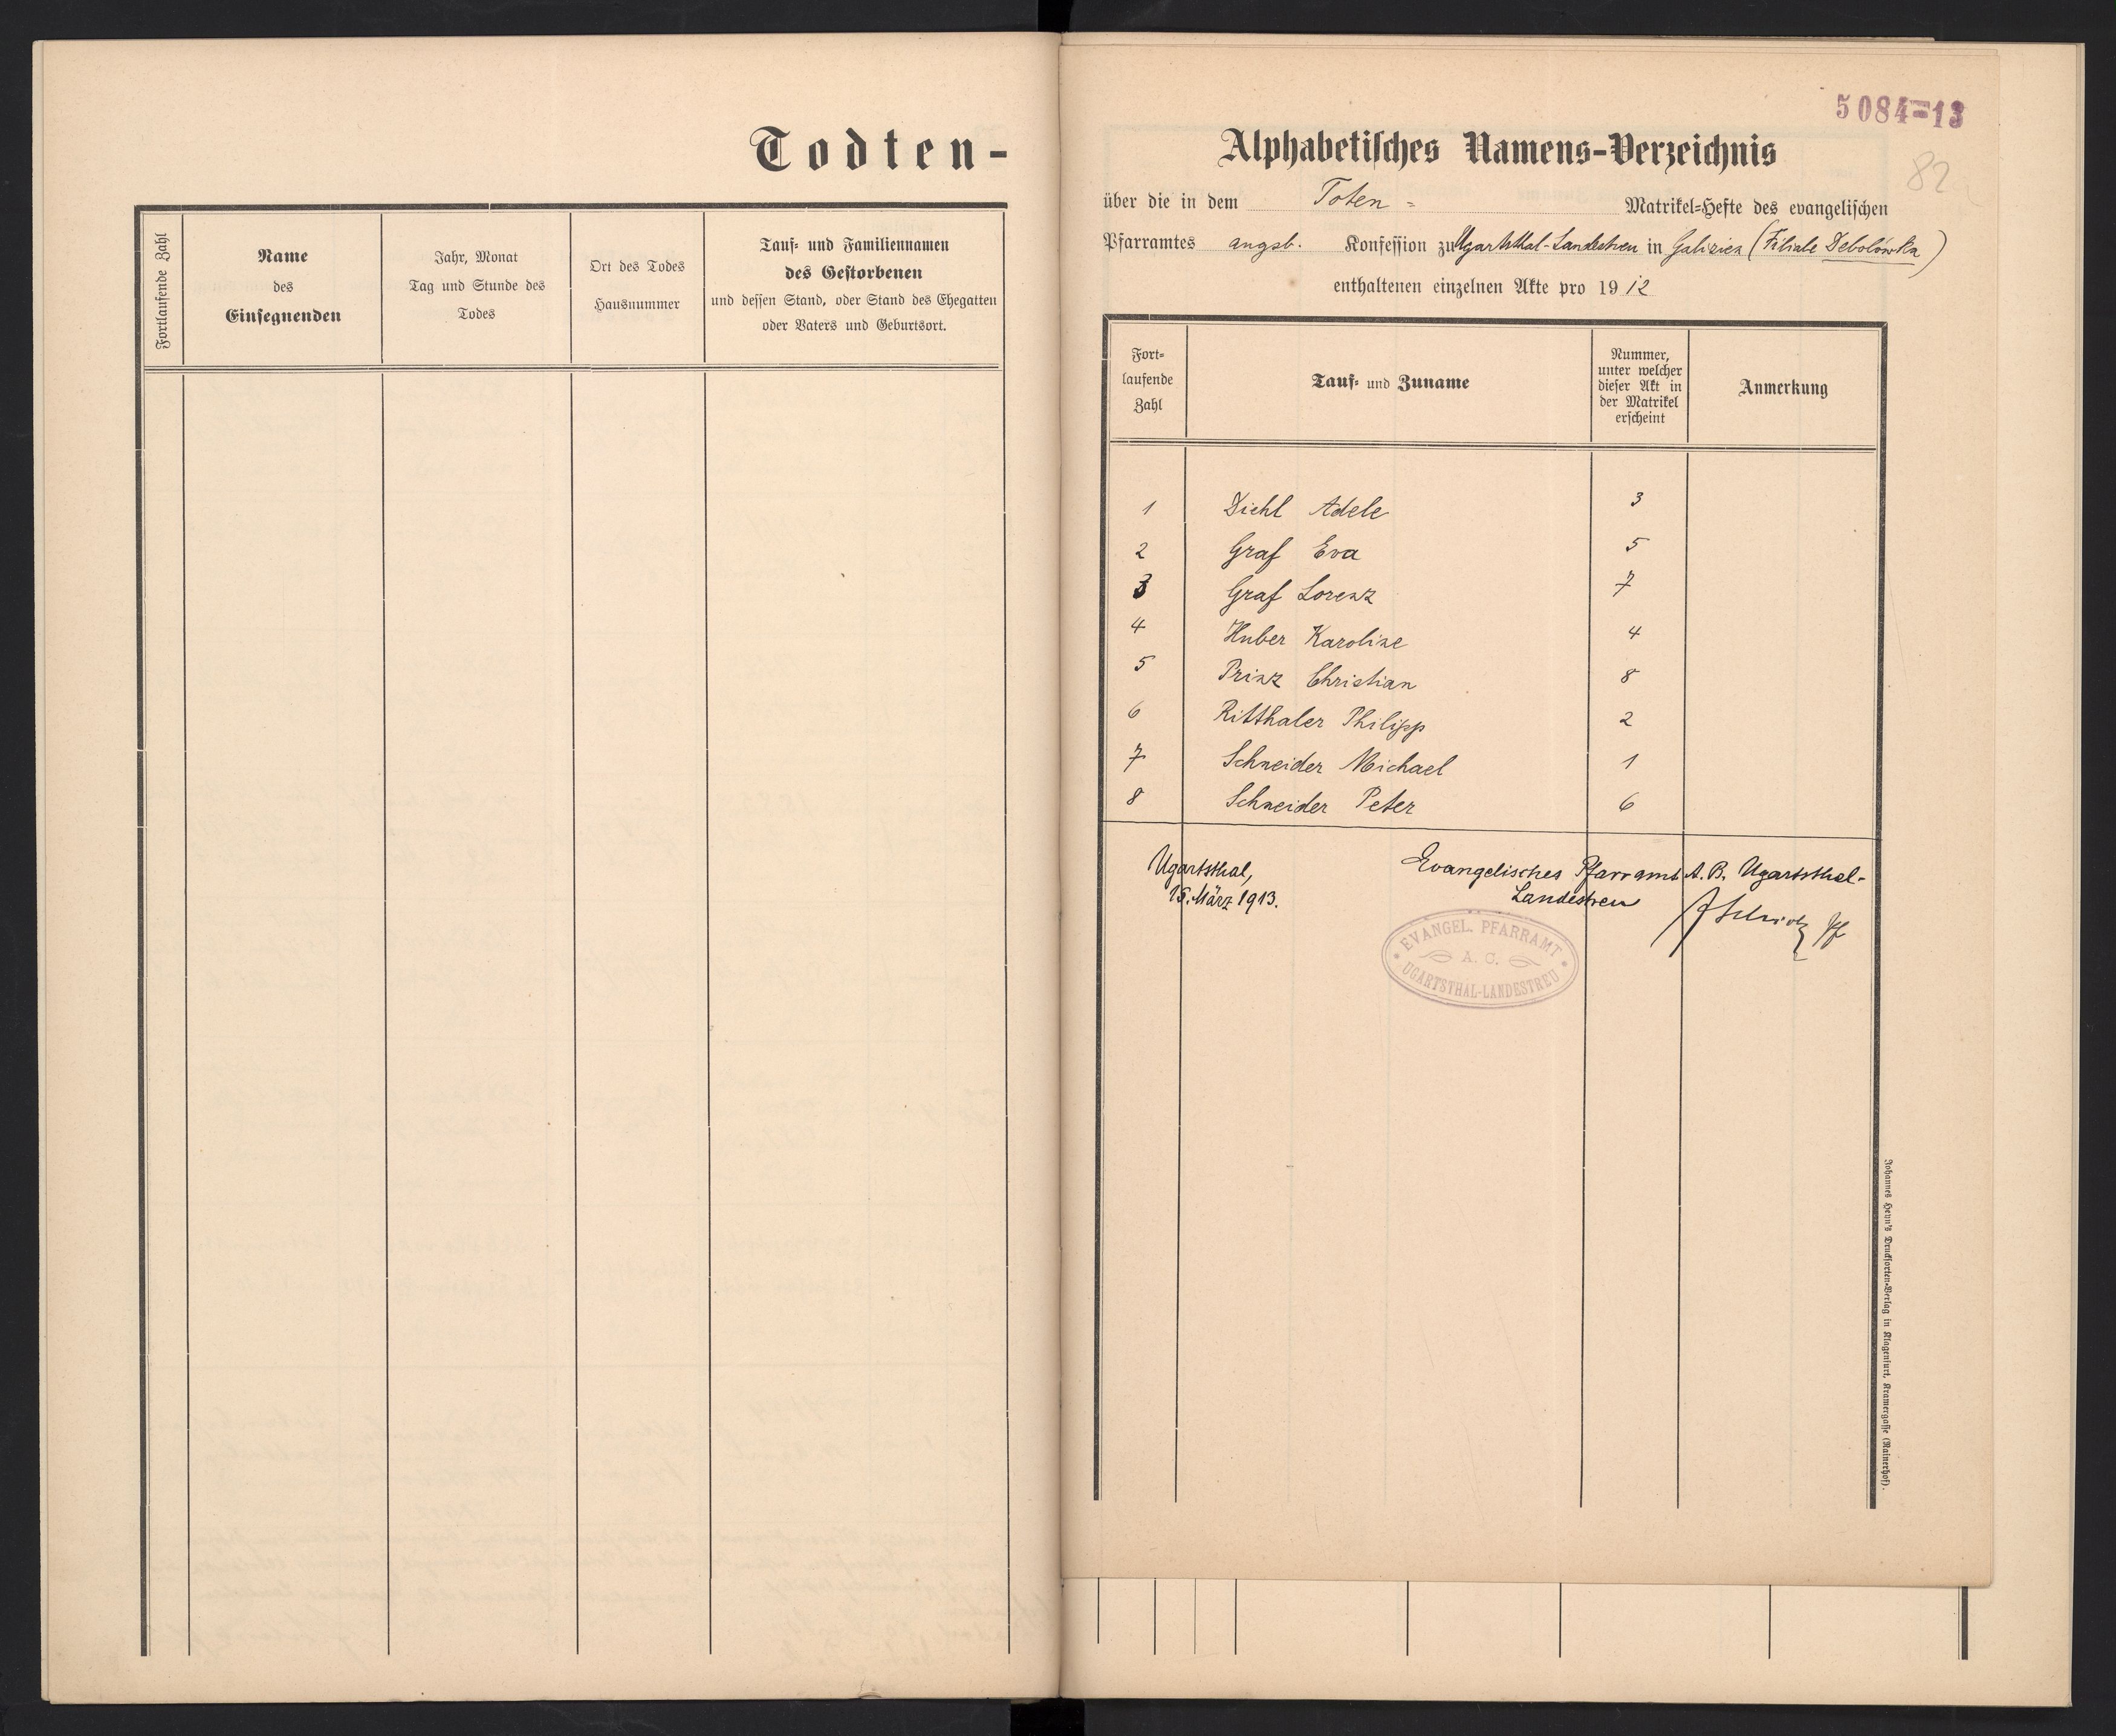 Todten-
Fortlaufende Zahl
Name
des
Einsegnenden
Jahr, Monat
Tag und Stunde des
Todes
Ort des Todes
Hausnummer
Tauf- und Familiennamen
des Gestorbenen
und dessen Stand, oder Stand des Ehegatten
oder Vaters und Geburtsort.
5084=13
82
Alphabetisches Namens-Verzeichnis
über die in dem Toten - Matrikel-Hefte des evangelischen
Pfarramtes augsb. Konfession zu Ugartsthal-Landestreu in Galizien (Filiale Debolówka)
enthaltenen einzelnen Akte pro 1912
Fort-
laufende
Zahl
Tauf- und Zuname
Nummer,
unter welcher
dieser Akt in
der Matrikel
erscheint
Anmerkung
1 Diehl Adele 3
2 Graf Eva 5
3 Graf Lorenz 7
4 Huber Karoline 4
5 Prinz Christian 8
6 Ritthaler Philipp 2
7 Schneider Michael 1
8 Schneider Peter 6
Ugartsthal,
15. März 1913.
Evangelisches Pfarramt A. B. Ugartsthal-
Landestreu
EVANGEL. PFARRAMT
A. C.
UGARTSTHAL-LANDESTREU
Johannes Heyn's Drucksorten-Verlag in Klagenfurt, Kramergasse (Rainerhof).